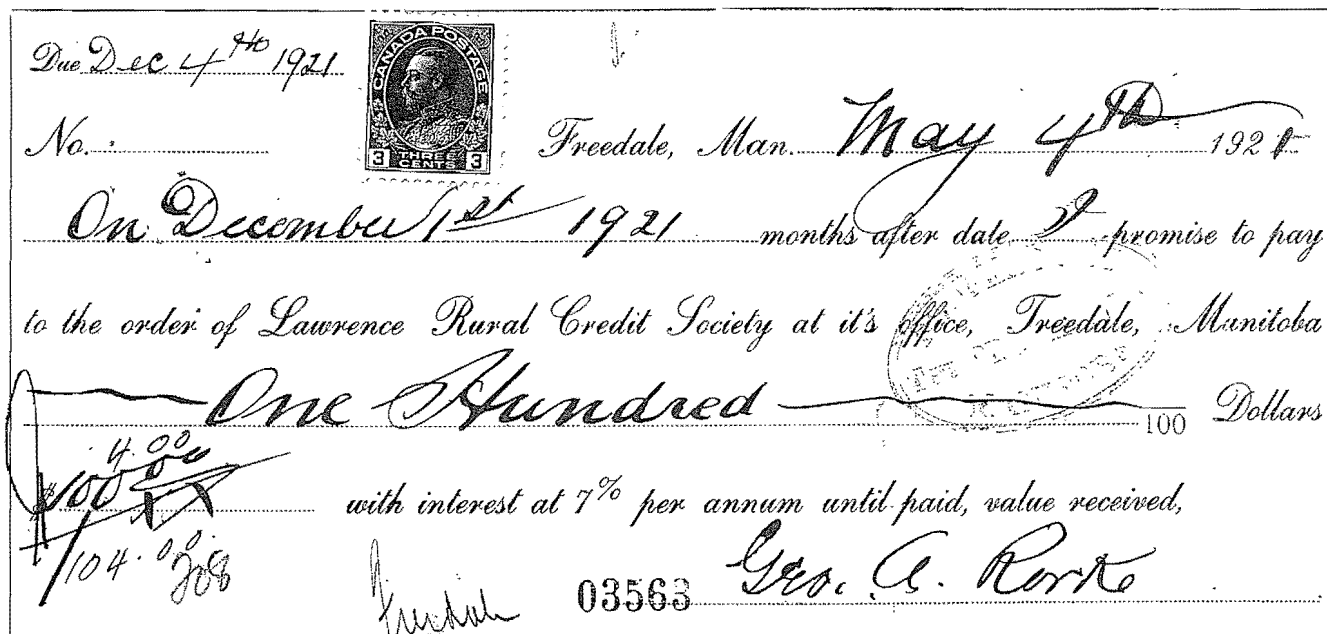 Due Dec 4th 1921
CANADA POSTAGE
3 THREE CENTS 3
No. Freedale, Man. May 4th 1921
On December 1st 1921 months after date I promise to pay
to the order of Lawrence Rural Credit Society at it's office, Freedale, Manitoba
One Hundred 100 Dollars
4.00
$100 00 XX with interest at 7% per annum until paid, value received,
104.00
208
Freedale 03563 Geo. A. Rorke